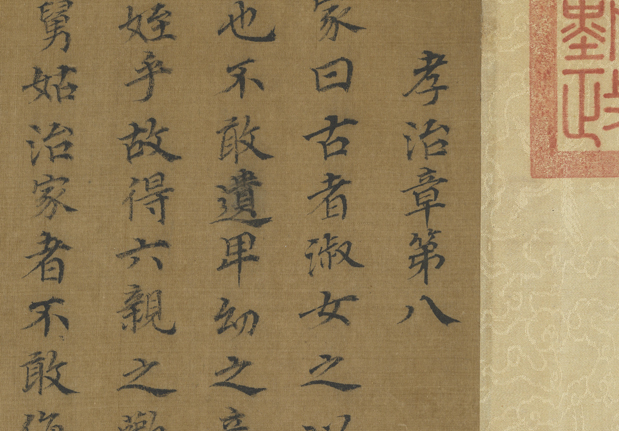 孝治章第八
家曰古者淑女之
也不敢遺卑幼之
姪乎故得六親之
舅姑治家者不敢